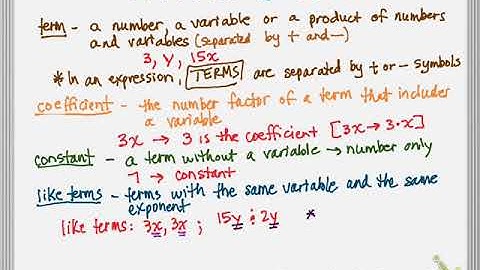 term - a number, a variable or a product of numbers
and variables (separated by + and -)
3, y, 15x
* In an expression, TERMS are separated by + or - symbols
coefficient - the number factor of a term that includes
a variable
3x → 3 is the coefficient [3x → 3·x]
constant - a term without a variable → number only
7 → constant
like terms - terms with the same variable and the same
exponent
like terms: 3x, 3x ; 15y : 2y *